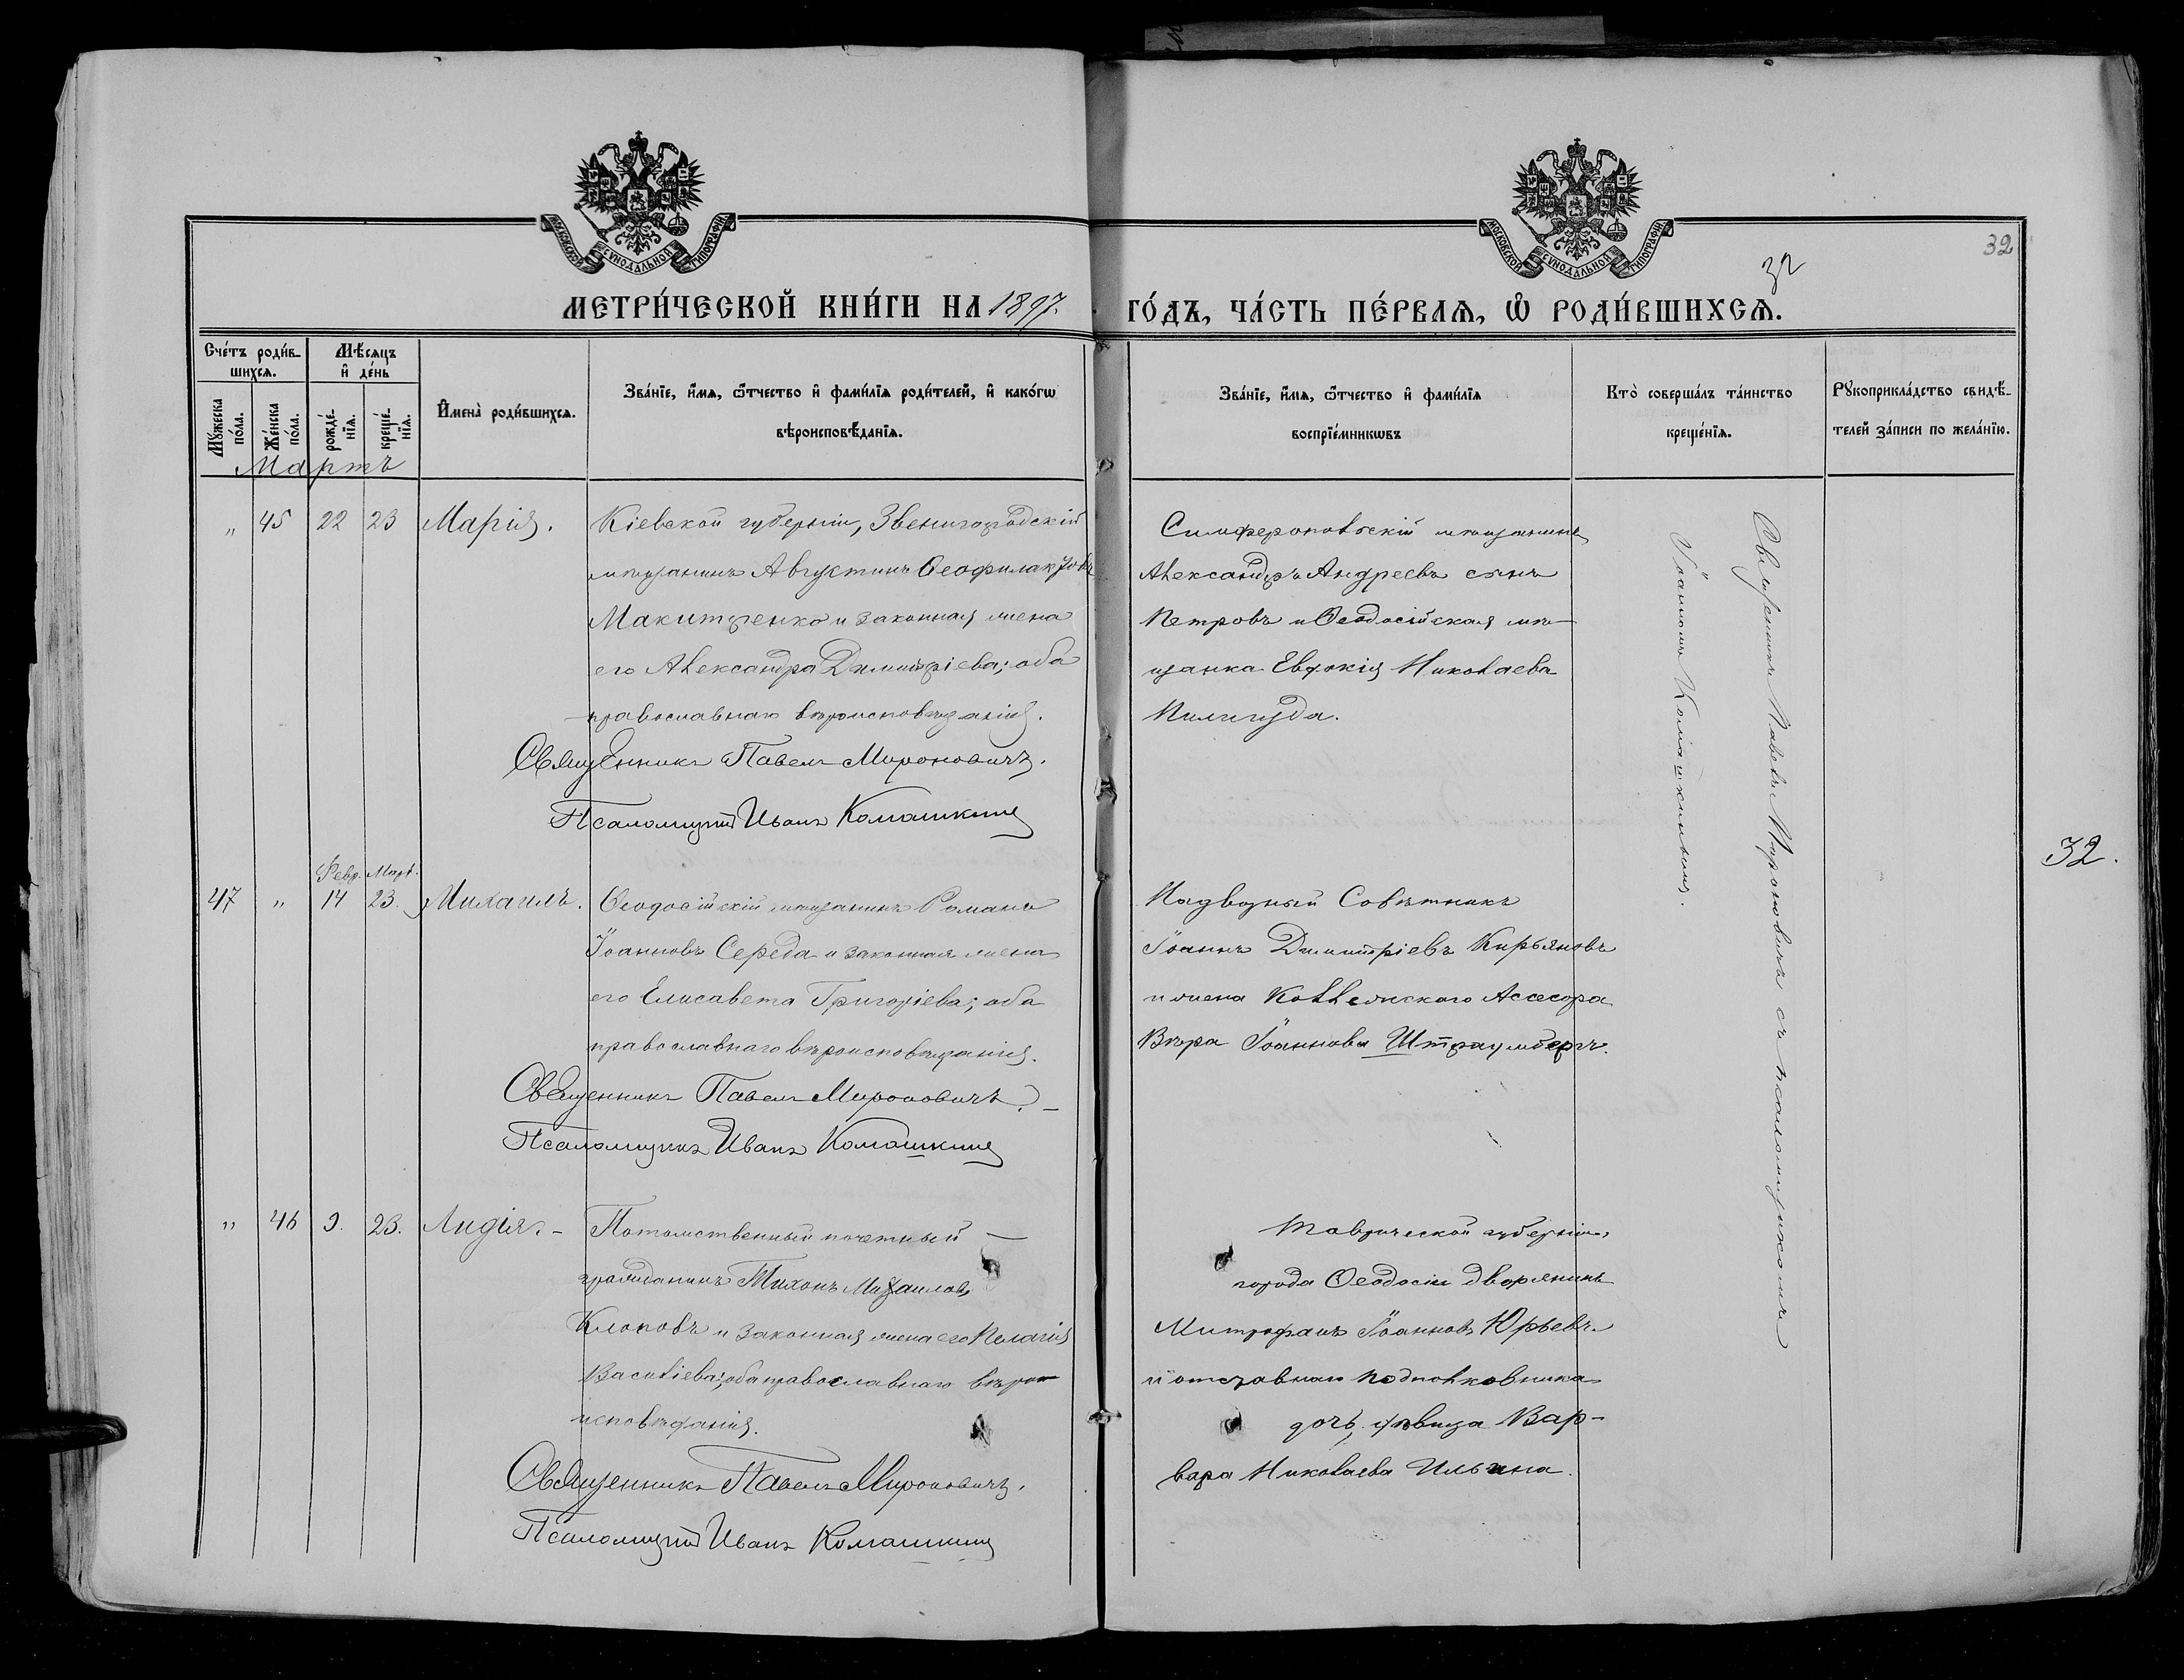 МОСКОВСКОЙ СѴНОДАЛЬНОЙ ТИПОГРАФІИ
МОСКОВСКОЙ СѴНОДАЛЬНОЙ ТИПОГРАФІИ
32
32
МЕТРИ́ЧЕСКОЙ КНИ́ГИ НА 1897. ГО́ДЪ, ЧА́СТЬ ПЕ́РВАѦ, Ѡ҆ РОДИ́ВШИХСѦ.
Сче́тъ роди́в-
шихсѧ.
Мѣ́сѧцъ
и҆ де́нь
Мꙋ́жеска по́ла.
Же́нска по́ла.
рожде́-
нїѧ.
креще́-
нїѧ.
И҆мена̀ роди́вшихсѧ.
Зва́нїе, и҆́мѧ, ѻ҆́тчество и҆ фами́лїѧ роди́телей, и҆ како́гѡ
вѣроисповѣ́данїѧ.
Зва́нїе, и҆́мѧ, ѻ҆́тчество и҆ фами́лїѧ
воспрїе́мникѡвъ
Кто̀ соверша́лъ та́инство
креще́нїѧ.
Рꙋкоприкла́дство свидѣ́-
телей за́писи по жела́нїю.
Мартъ
" 45 22 23 Марія.
Кіевской губерніи, Звенигородскій
мѣщанинъ Августинъ Ѳеофилактовъ
Макитренко и законная жена
его Александра Димитріева; оба
православнаго вѣроисповѣданія.
Священникъ Павелъ Мироновичъ.
Псаломщикъ Иванъ Комашкинъ
Симферопольскій мѣщанинъ
Александръ Андреевъ сынъ
Петровъ и Ѳеодосійская мѣ-
щанка Евдокія Николаева
Священникъ Павелъ Мироновичъ съ псаломщикомъ
Іоанномъ Комашкинымъ.
32.
Февр. Март.
47 " 14 23. Михаилъ.
Ѳеодосійскій мѣщанинъ Романъ
Іоанновъ Середа и законная жена
его Елисавета Григоріева; оба
православнаго вѣроисповѣданія.
Священникъ Павелъ Мироновичъ.
Псаломщикъ Иванъ Комашкинъ
Надворный Совѣтникъ
Іоаннъ Димитріевъ Кирьяновъ
и жена Коллежскаго Асесора
Вѣра Іоаннова Штраумбергъ.
" 46 9. 23. Лидія. -
Потомственный почетный
гражданинъ Тихонъ Михаиловъ
Клоповъ и законная жена его Пелагія
Василіева; оба православнаго вѣро
исповѣданія.
Священникъ Павелъ Мироновичъ.
Псаломщикъ Иванъ Комашкинъ
Таврической губерніи,
города Ѳеодосіи дворянинъ
Митрофанъ Іоанновъ Юрьевъ
и отставнаго подполковника
дочь, дѣвица Вар-
вара Николаева Ильина.